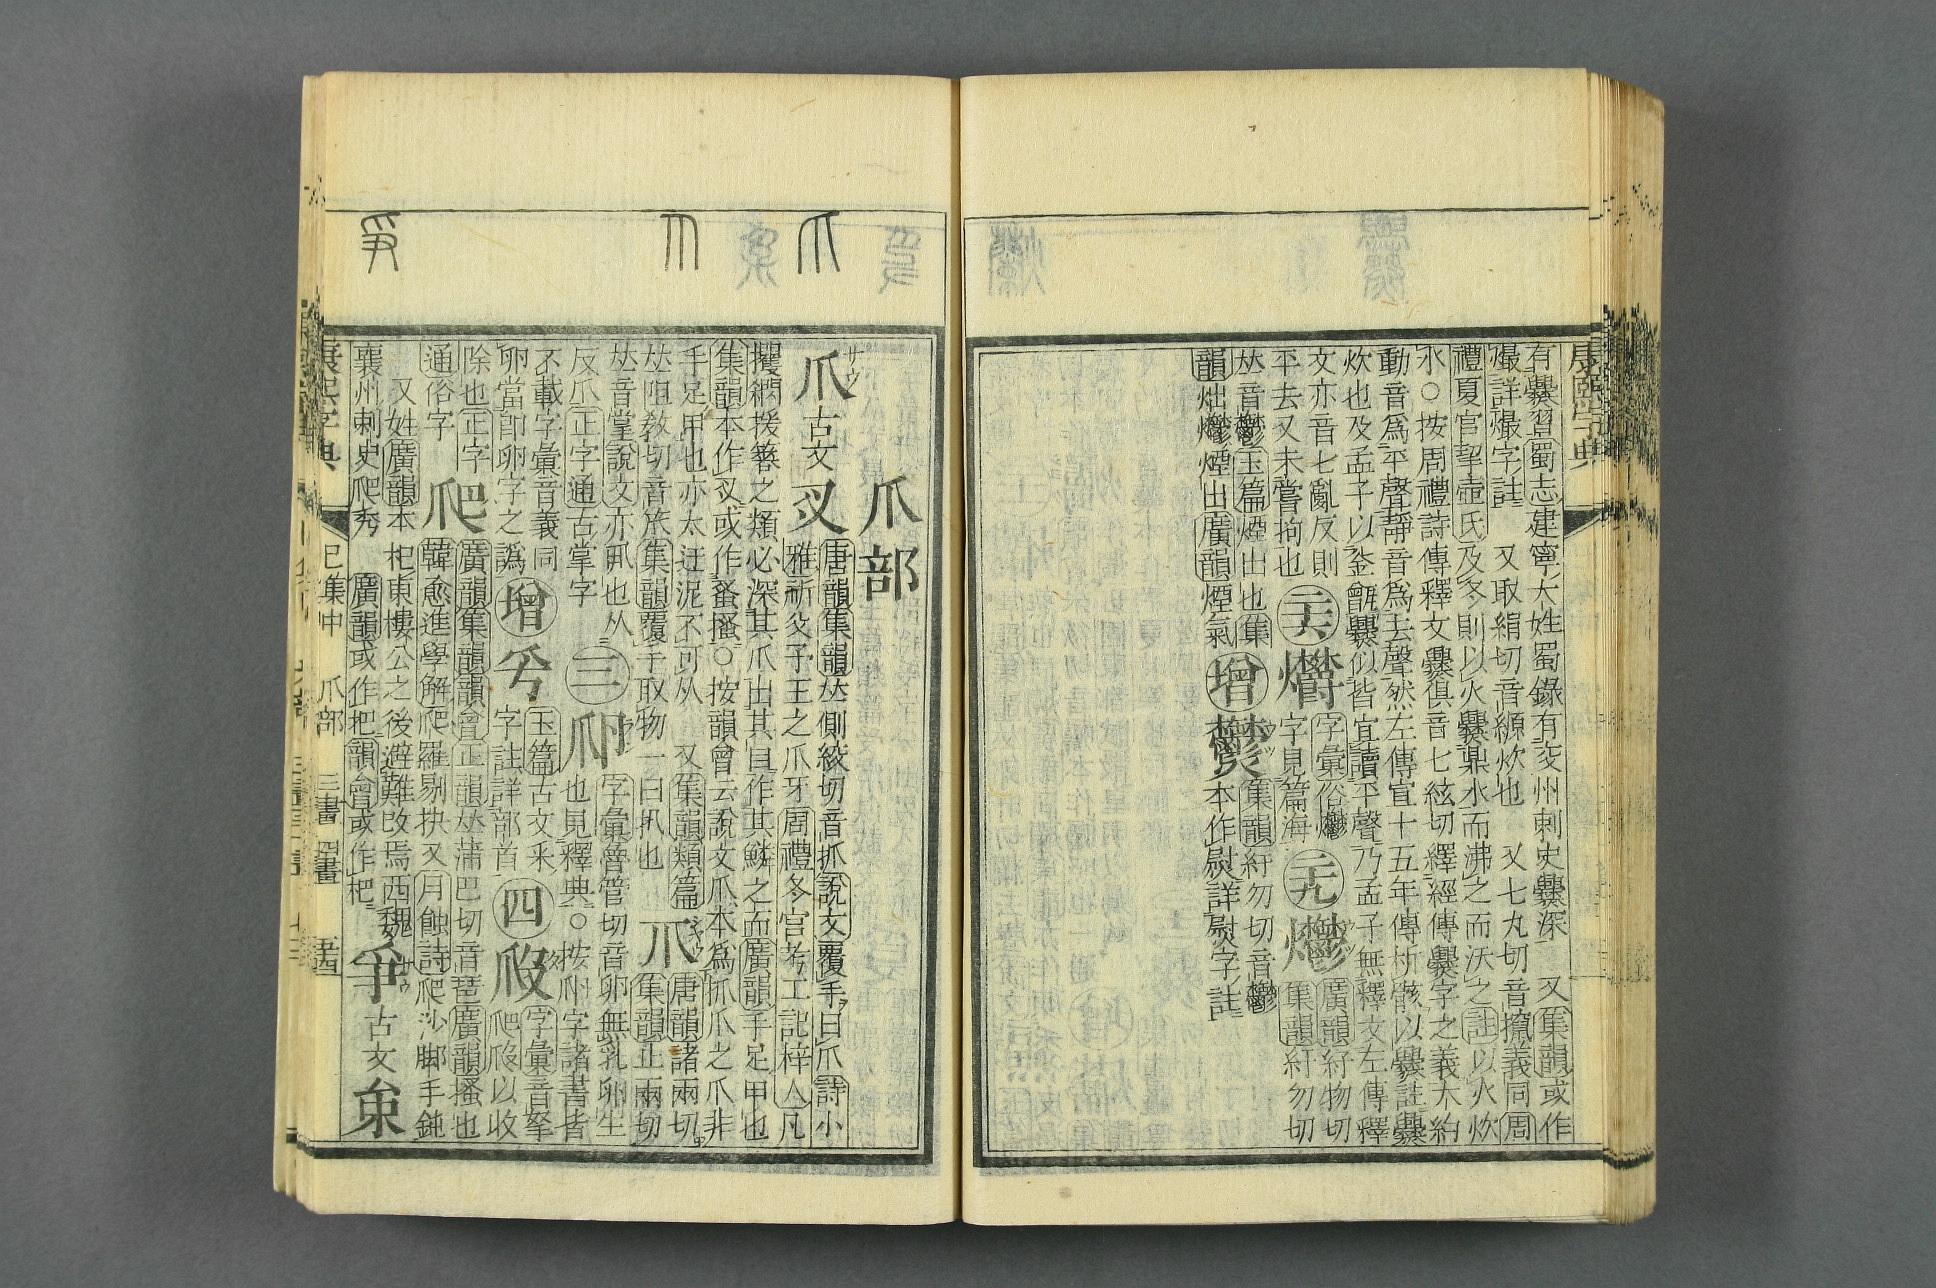 康熙字典
有爨習蜀志建寧大姓蜀錄有交州刺史爨深　又集韻或作
㸑詳㸑字註　又取絹切音縓炊也　又七丸切音攛義同周
禮夏官挈壺氏及冬則以火爨鼎水而沸之而沃之註以火炊
水○按周禮詩傳釋文爨俱音七絃切繹經傳爨字之義大約
動音爲平聲靜音爲去聲然左傳宣十五年傳析骸以爨註爨
炊也及孟子以釜甑爨似皆宜讀平聲乃孟子無釋文左傳釋
文亦音七亂反則
平去又未嘗拘也
字彙俗
字見篇海
廣韻紆物切
集韻紆勿切
𠀤音鬱玉篇煙出也集
韻㶤鬱煙出廣韻煙氣
增
集韻紆勿切音鬱
本作尉詳尉字註
爪部
爪
古文
叉
唐韻集韻𠀤側絞切音抓說文覆手曰爪詩小
雅祈父予王之爪牙周禮冬官考工記梓人凡
攫閷援簭之類必深其爪出其目作其鱗之而廣韻手足甲也
集韻本作叉或作蚤搔○按韻會云說文爪本爲抓爪之爪非
手足甲也亦太迂泥不可从　又集韻類篇
𠀤阻敎切音旅集韻覆手取物一曰扟也
爪
唐韻諸兩切
集韻止兩切
𠀤音掌說文亦丮也从
反爪正字通古掌字
三
字彙魯管切音卵無乳卵生
也見釋典○按附字諸書皆
不載字彙音義同
卵當卽卵字之譌
增
玉篇古文釆
字註詳部首
四
字彙音拏
以收
除也正字
通俗字
爬
廣韻集韻韻會正韻𠀤蒲巴切音琶廣韻搔也
韓愈進學解爬羅剔抉又月蝕詩爬沙脚手鈍
又姓廣韻本杞東樓公之後避難改焉西魏
襄州刺史爬秀　廣韻或作把韻會或作杷
爭
古文
康熙字典
巳集中　爪部　三畫　四畫